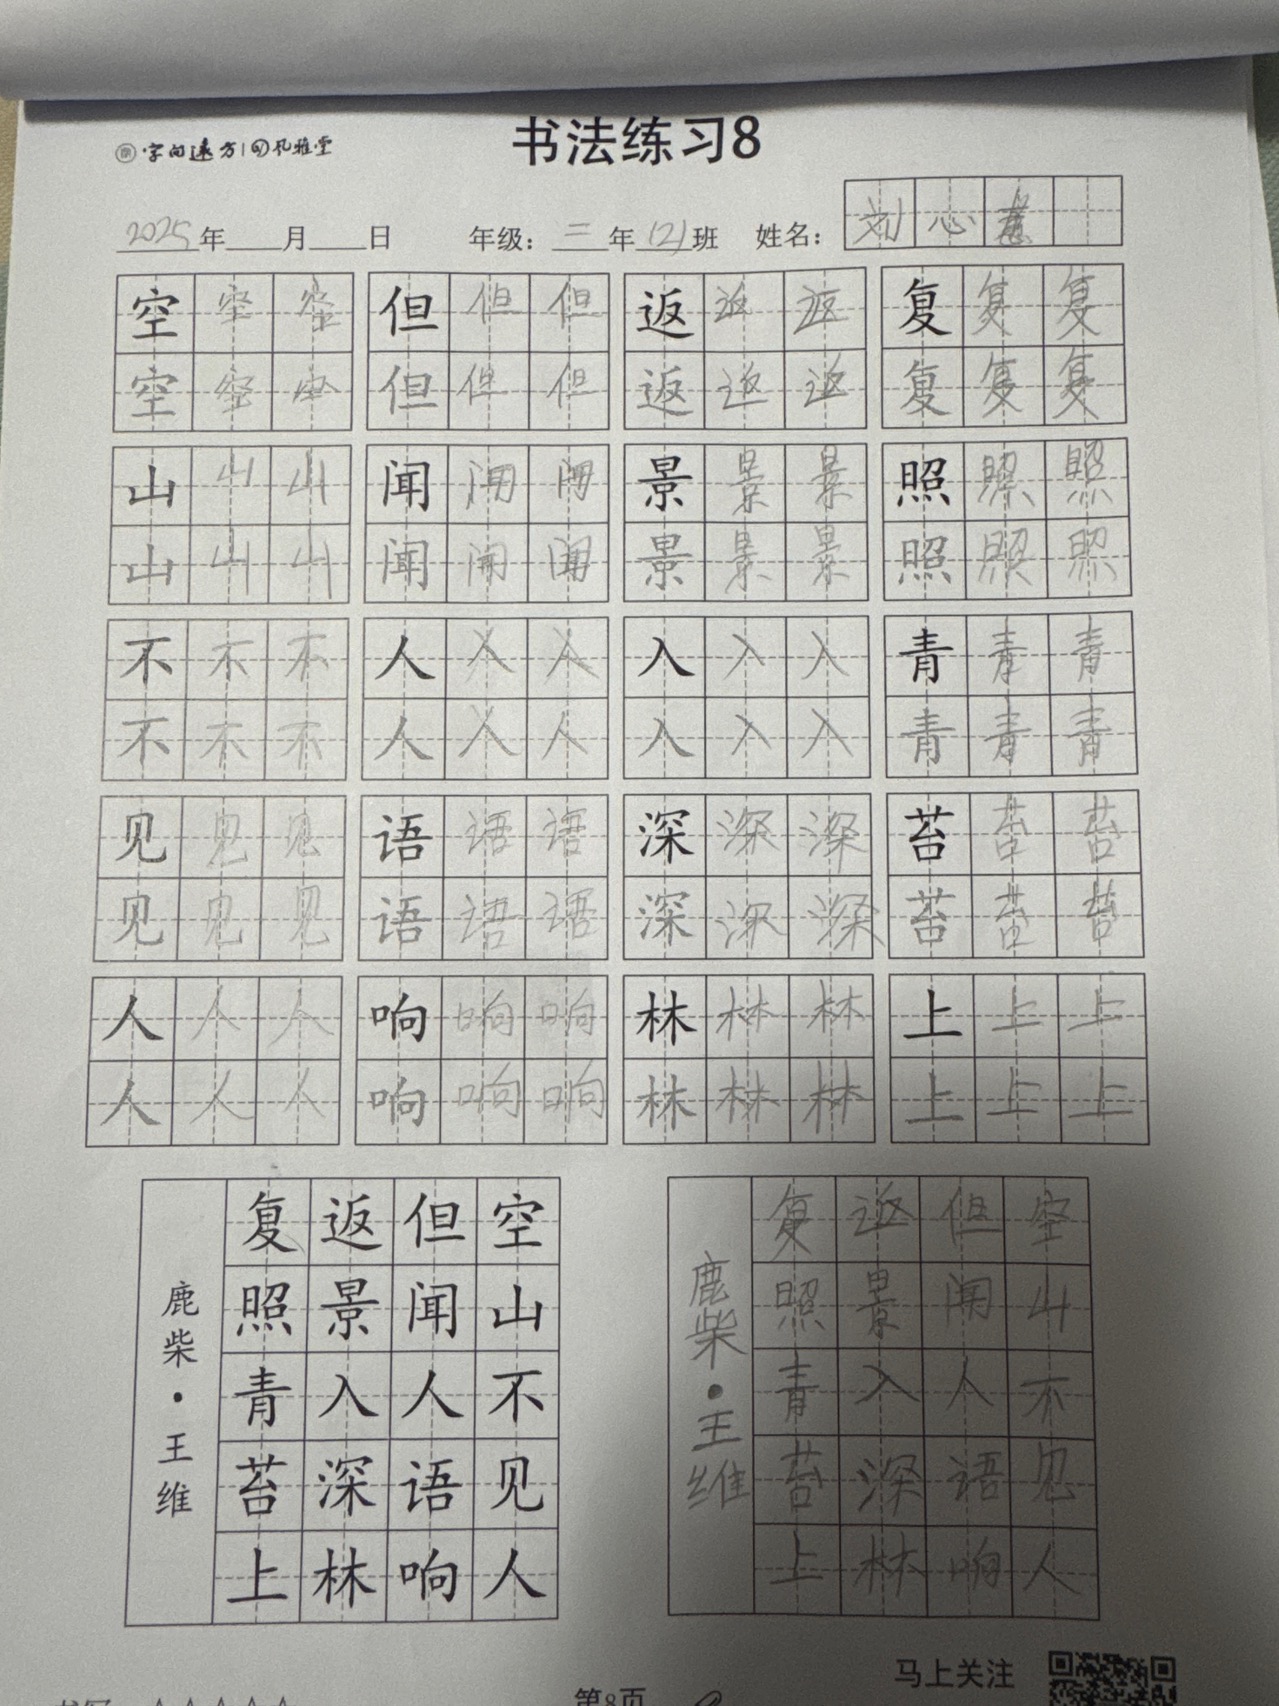 字向遠方 孔雅堂
书法练习8
2025年 月 日 年级：二年(2)班 姓名：刘心慧
空空空 但但但 返返返 复复复
空空空 但但但 返返返 复复复
山山山 闻闻闻 景景景 照照照
山山山 闻闻闻 景景景 照照照
不不不 人人人 入入入 青青青
不不不 人人人 入入入 青青青
见见见 语语语 深深深 苔苔苔
见见见 语语语 深深深 苔苔苔
人人人 响响响 林林林 上上上
人人人 响响响 林林林 上上上
空山不见人
但闻人语响
返景入深林
复照青苔上
鹿柴·王维
空山不见人
但闻人语响
返景入深林
复照青苔上
鹿柴·王维
马上关注
第8页